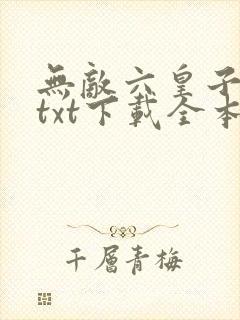 無敵六皇子
txt下載全本
千層青梅